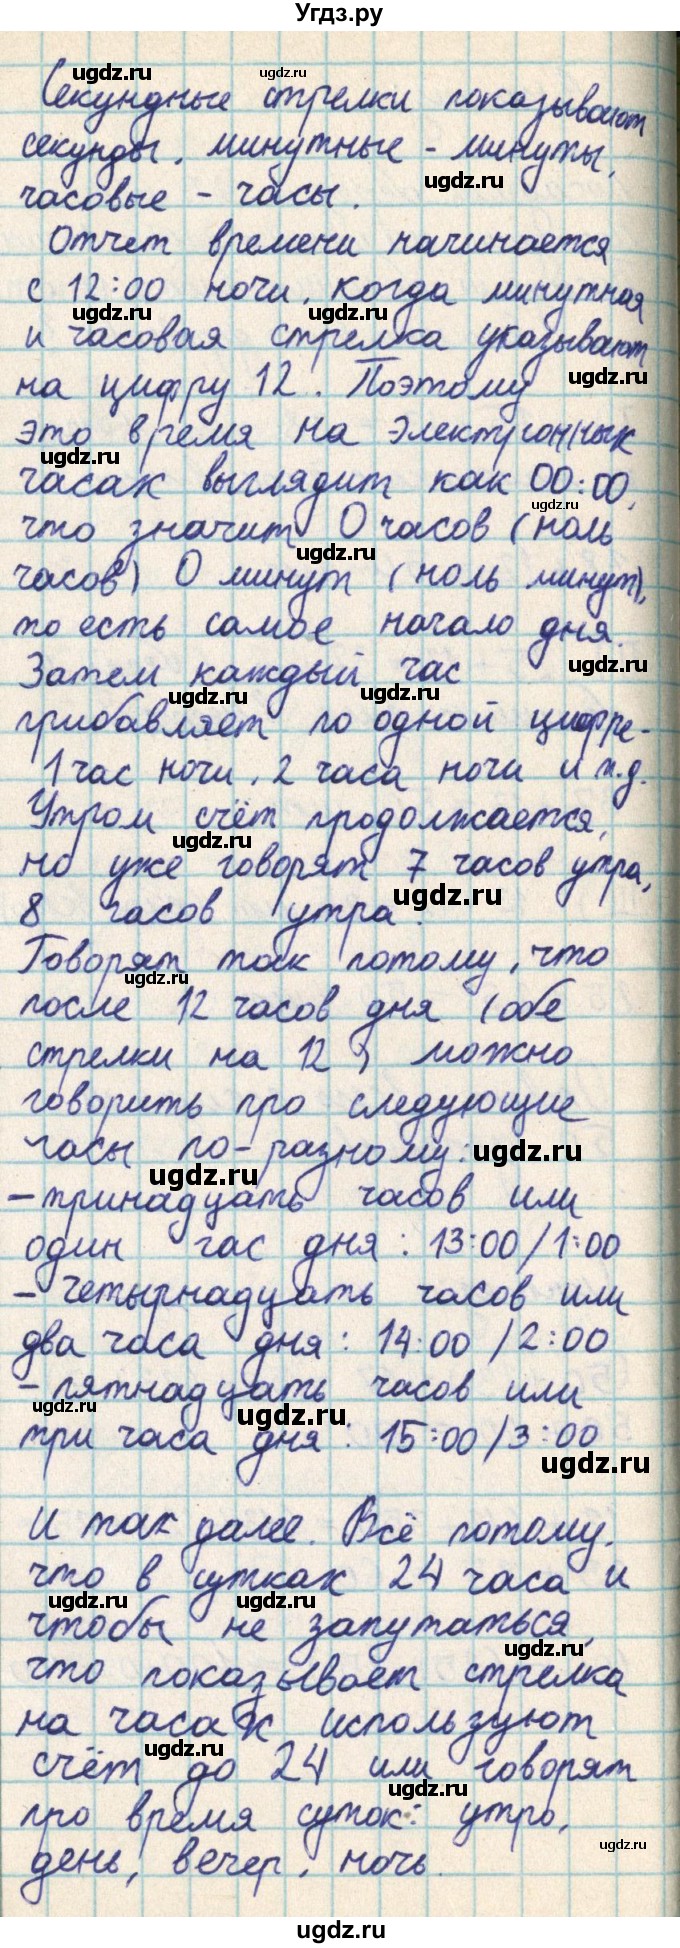 Угдз.ру
Секундные стрелки показывают
секунды, минутные - минуты,
часовые - часы.
Отчет времени начинается
с 12:00 ночи, когда минутная
и часовая стрелка указывают
на цифру 12. Поэтому
это время на электронных
часах выглядит как 00:00,
что значит 0 часов (ноль
часов) 0 минут (ноль минут),
то есть самое начало дня.
Затем каждый час
прибавляет по одной цифре -
1 час ночи, 2 часа ночи и т.д.
Утром счёт продолжается,
но уже говорят 7 часов утра,
8 часов утра.
Говорят так потому, что
после 12 часов дня (обе
стрелки на 12) можно
говорить про следующие
часы по-разному:
- тринадцать часов или
один час дня: 13:00/1:00
- четырнадцать часов или
два часа дня: 14:00/2:00
- пятнадцать часов или
три часа дня: 15:00/3:00
И так далее. Всё потому,
что в сутках 24 часа и
чтобы не запутаться,
что показывает стрелка
на часах используют
счёт до 24 или говорят
про время суток: утро,
день, вечер, ночь.
ugdz.ru